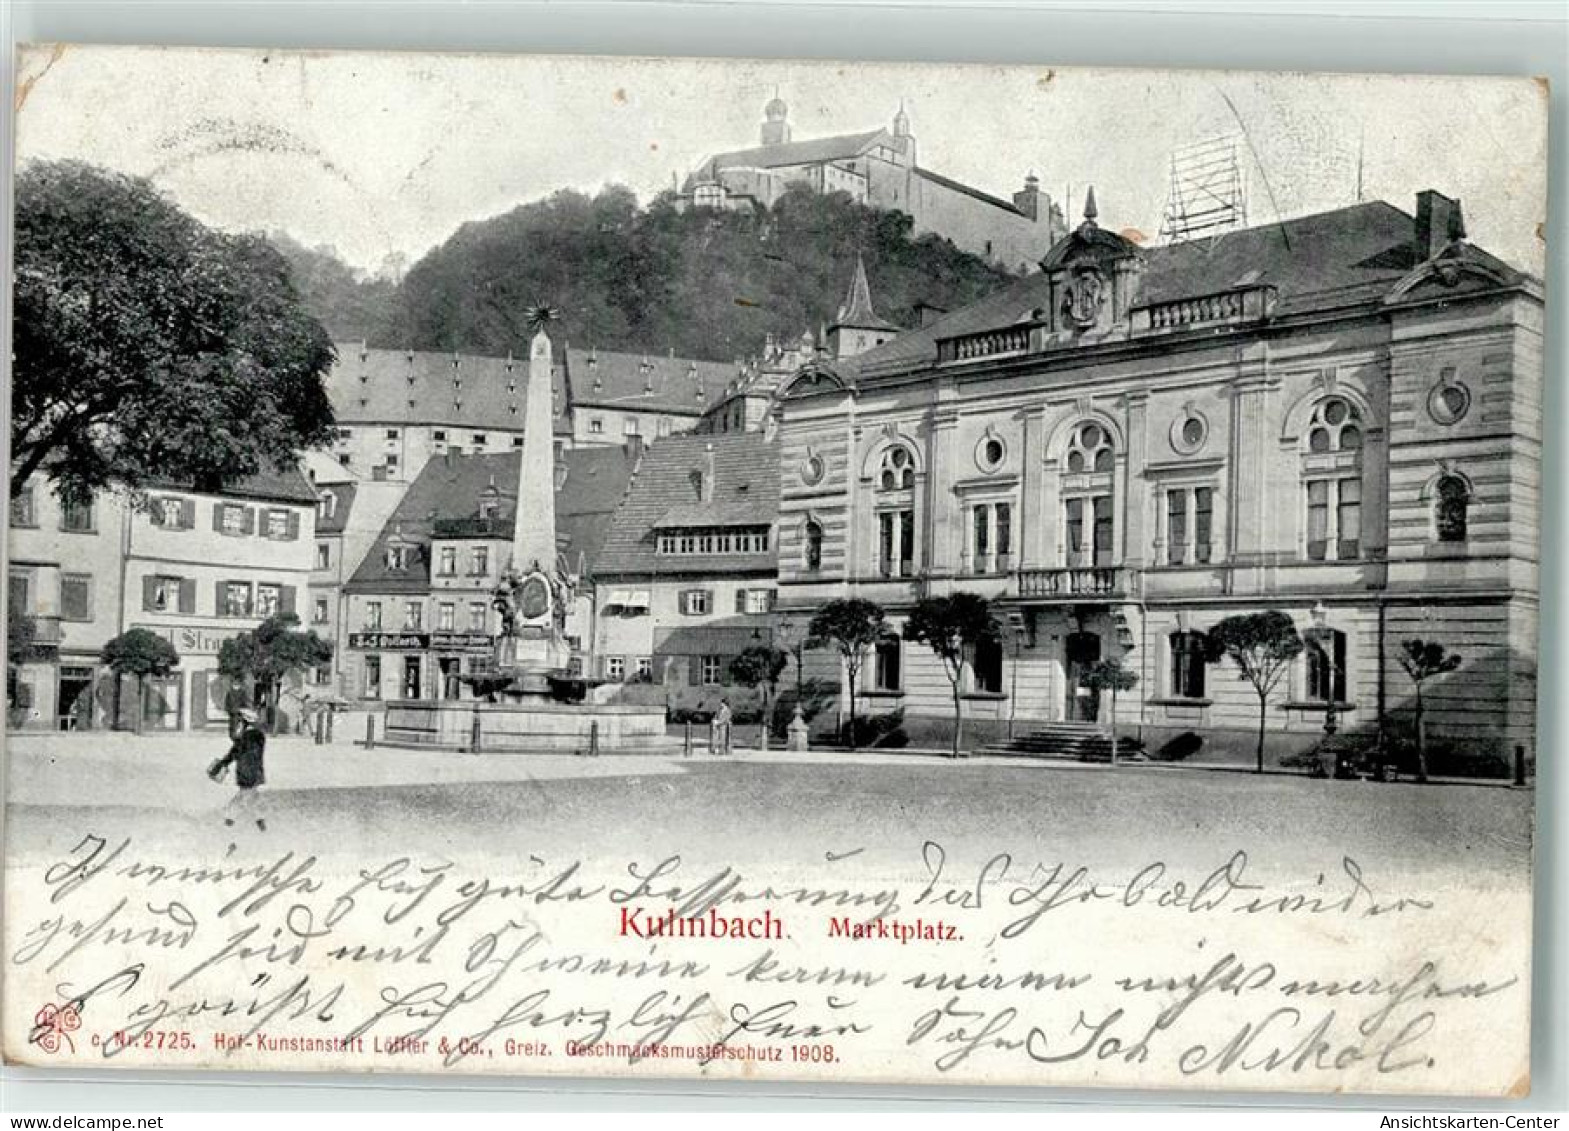 Strau
Ich wünsche Euch gute Besserung das Ihr bald wieder
Kulmbach. Marktplatz.
gesund seid mit Schweine kann mann nichts machen
Es grüßt Euch herzlich Euer Sohn Joh Nikol.
c. Nr. 2725. Hof-Kunstanstalt Löffler & Co., Greiz. Geschmacksmusterschutz 1908.
Ansichtskarten-Center